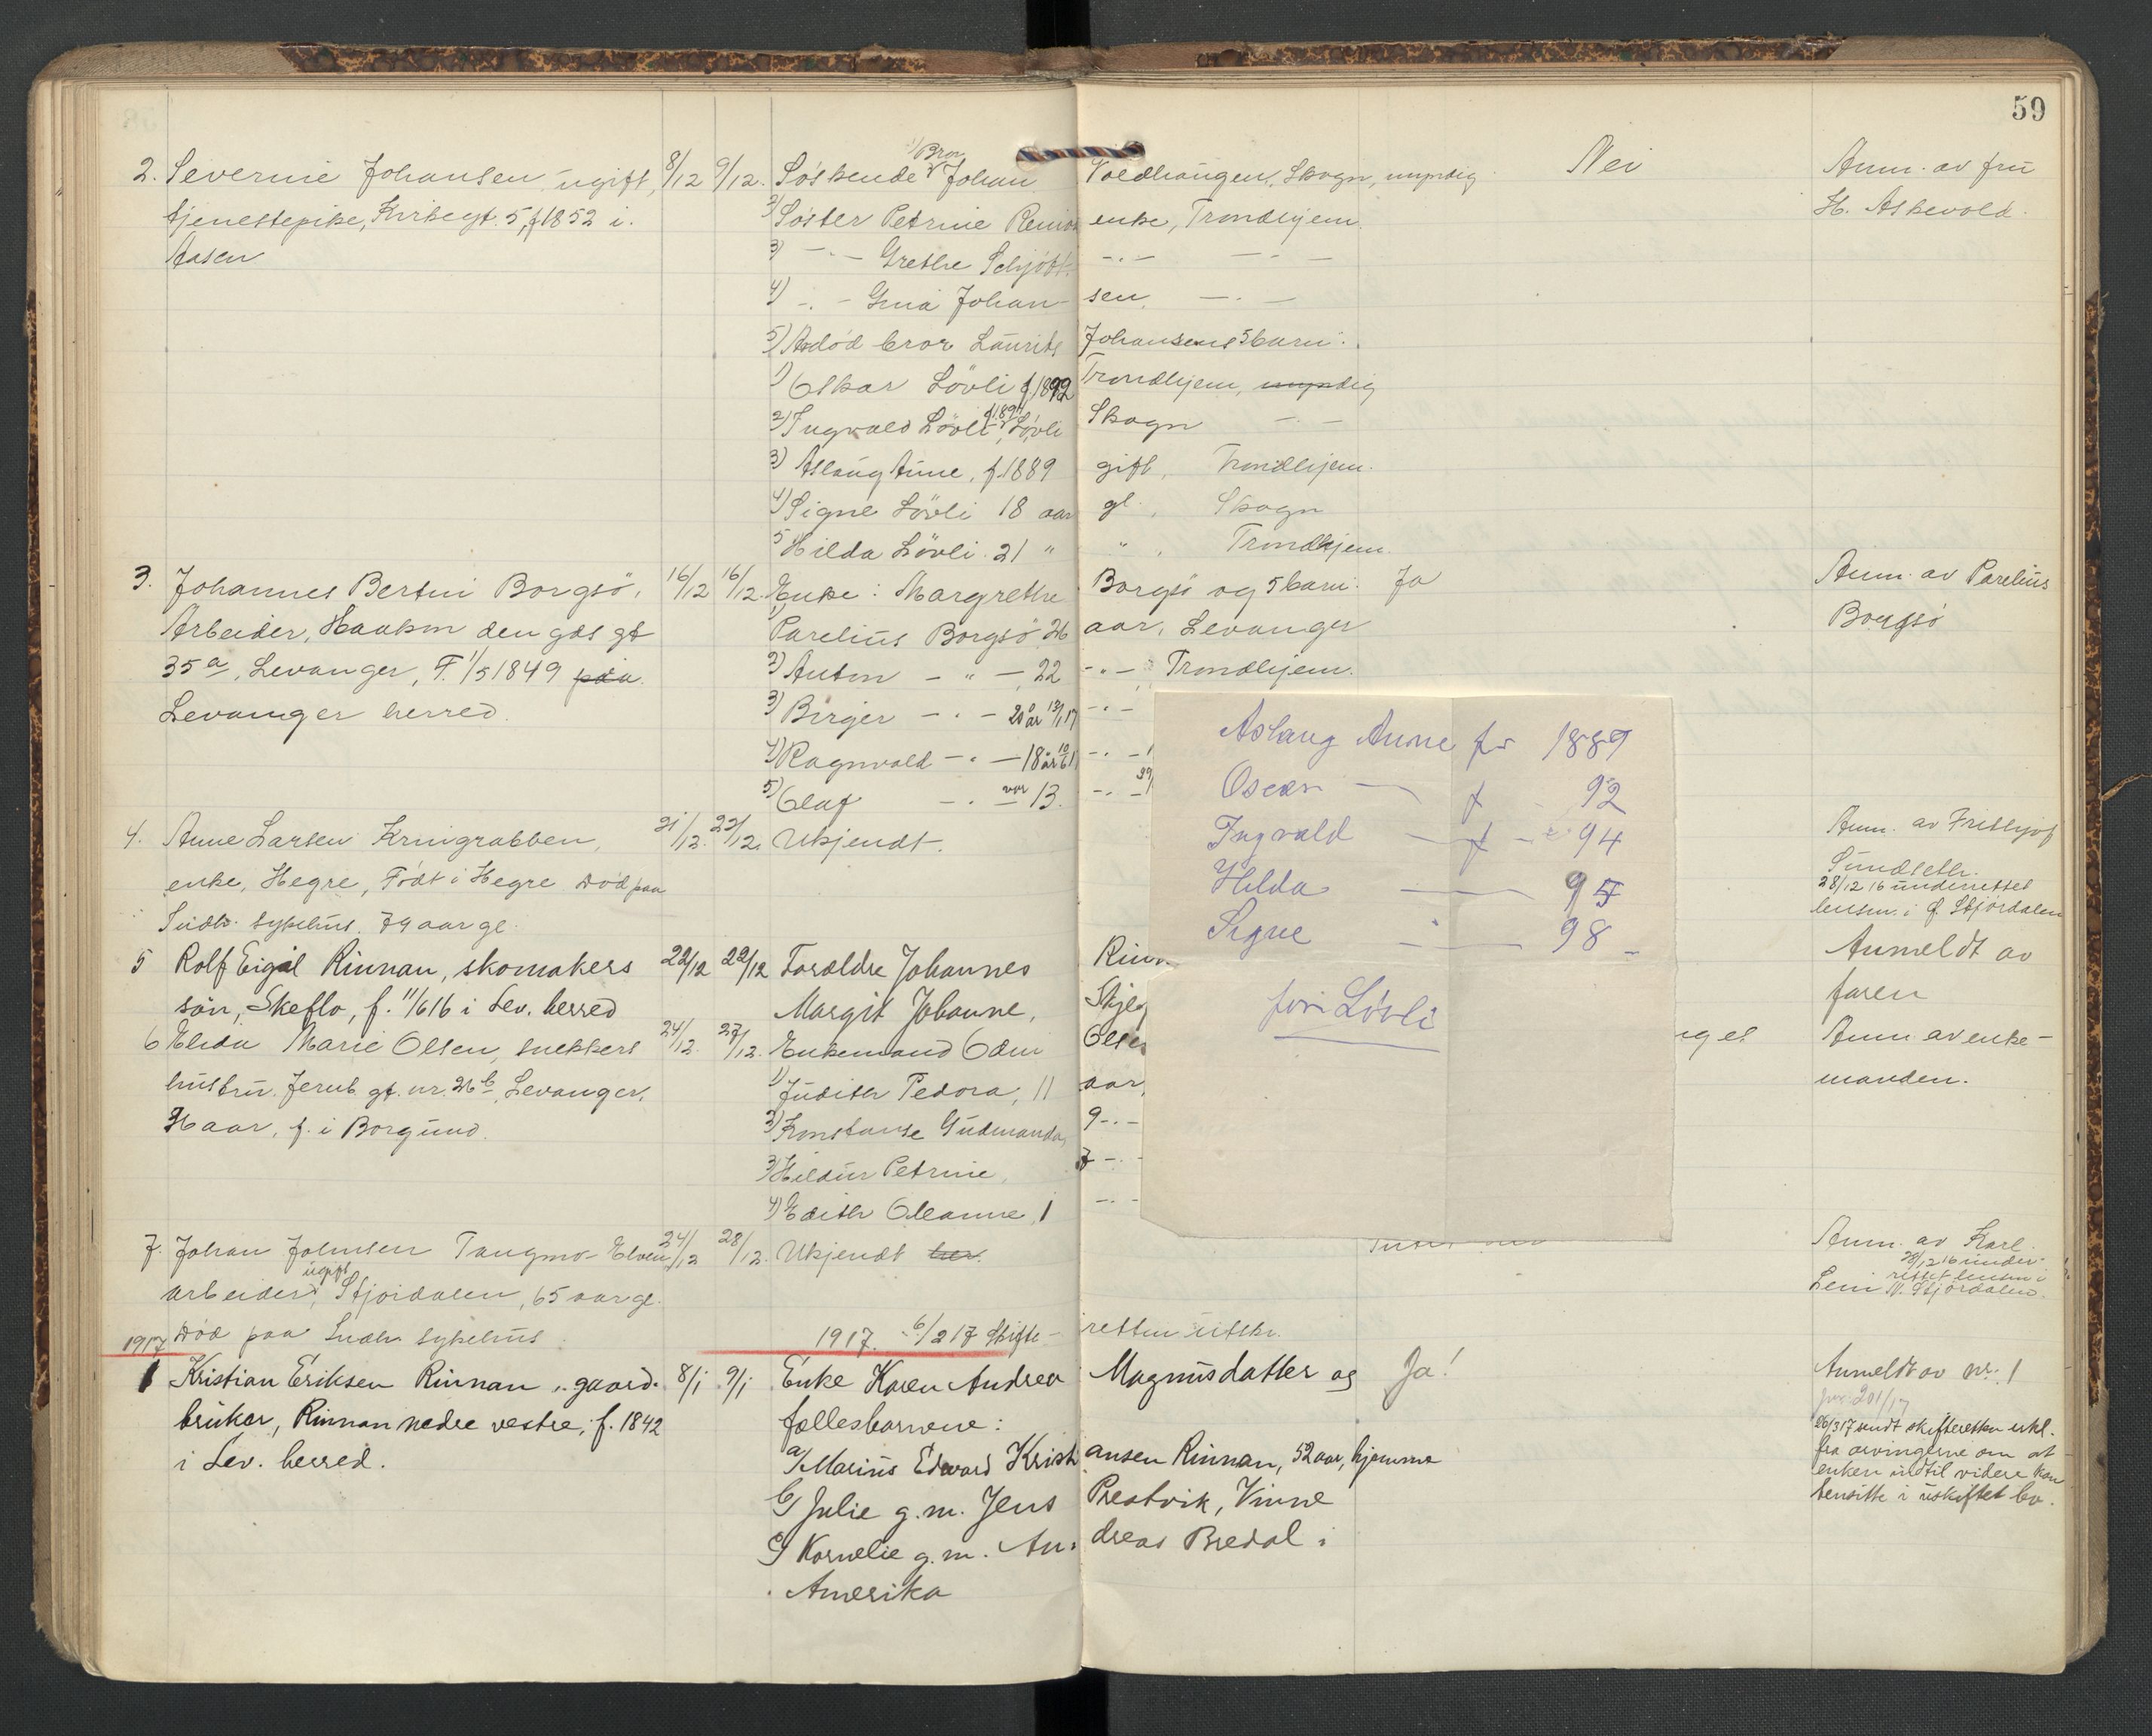 59
2. Severine Johansen, ugift, 8/12 9/12. Søskende 1) Bror Johan Voldhaugen, Skogn, myndig Nei Anm. av fru
tjenestepike, Kirkegt. 5, f 1852 i 2) Søster Petrine enke, Trondhjem. H. Askevold.
Aasen 3) -"- Grethe -"- -"-
4) -"- Johansen -"-
5) Avdød bror Laurits Johansens 5 barn:
1) Oskar Lövli f 1892 Trondhjem, myndig
2) Ingvald Lövli f 1894, Lövli Skogn -"-
3) Aslaug Aune, f. 1889 gift, Trondhjem.
4) Signe Lövli 18 aar gl., Skogn
5 Hilda Lövli 21 " " , Trondhjem.
3. Johannes Bertin Borgsö, 16/12 16/12. Enke: Margrethe Borgsö og 5 barn: Ja Anm. av Parelius
Arbeider, Haakon den gds gt 1) Parelius Borgsö 26 aar, Levanger Borgsö
35 a, Levanger, F. 1/5 1849 paa 2) Anton - " - 22 -"- Trondhjem.
Levanger herred. 3) Birger -"- 20 år 13/1 17 -"-
4) Ragnvald -"- 18 år 10/6 -"-
5) Olaf -"- var 13. -"-
4. Anne Larsen Kringrabben, 21/12. 22/12. Ukjendt. Anm. av Frithjof
enke, Hegre, Født i Hegre død paa Sundseth.
Indh. sykehus. 79 aar gl. 28/12 16 underrettet
lensm. i Ø. Stjørdalen
5 Rolf Eigil Rinnan, skomakers 22/12 22/12 Foreldre Johannes Rinn Anmeldt av
sön, Skeflo, f. 11/6 16 i Lev. herred Margit Johanne, Skjeg faren
6 Elida Marie Olsen, snekkers 24/12. 27/12. Enkemand Odin Olsen nget Anm av enke-
hustru. Jernb. gt. nr. 26 b, Levanger, 1) Judith Pedora, 11 aar, manden.
36 aar, f. i Borgund. 2) Konstanse Gudmanda, 9 -"-
3) Hildur Petrine, 7 -"-
4) Edith Oleanne, 1 -"-
7. Johan Johnsen Tangmo-Elven 24/12 28/12. Ukjendt her. Anm. av Karl
arbeider, ugift, Stjørdalen, 65 aar gl. Lein 28/12 16 underrettet lensm i N. Stjørdalen.
Død paa Indh. sykehus.
1917 1917. 6/2 17 Skifteretten utskr.
1 Kristian Eriksen Rinnan, gaard- 8/1 9/1 Enke Karen Andrea Magnusdatter og Ja! Anmeldt av nr. 1
bruker, Rinnan nedre vestre, f. 1842 fællesbarnene: 201/17
i Lev. herred. a/ Marius Edvard Kristiansen Rinnan, 52 aar, hjemme 26/3 17 sendt skifteretten erkl.
b/ Julie g. m. Jens Prestvik, Vinne fra arvingerne om at
c/ Kornelie g. m. Andreas Bredal i enken indtil videre kan
Amerika hensitte i uskiftet bo.
Aslaug Aune f - 1889
Oscar - f - 92
Ingvald - f - 94
Hilda - 95
Signe - 98 -
Lövli